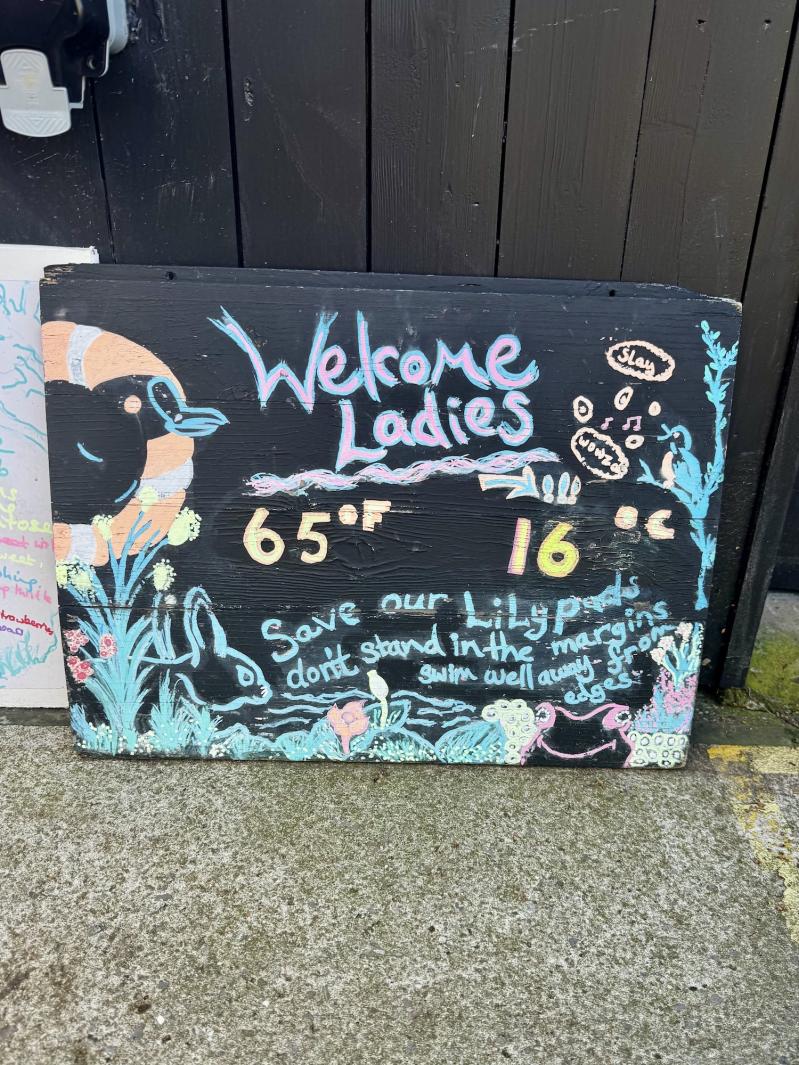 Welcome
Ladies
Slay
65°F
16 °C
Save our LiLypads
don't stand in the margins
swim well away from
edges